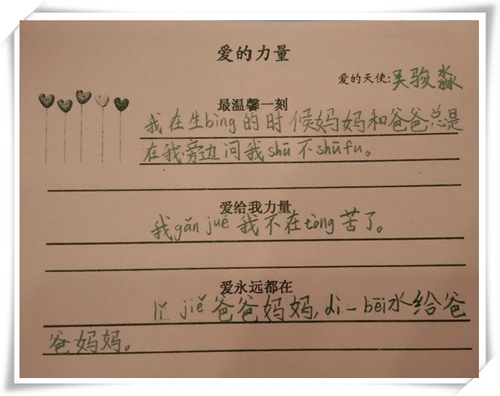 爱的力量
爱的天使:吴骏淼
最温馨一刻
我在生bìng的时候妈妈和爸爸总是
在我旁边问我shū不shūfu。
爱给我力量
我gǎn jué我不在tòng苦了。
爱永远都在
lǐ jiě爸爸妈妈,dì一bēi水给爸
爸妈妈。